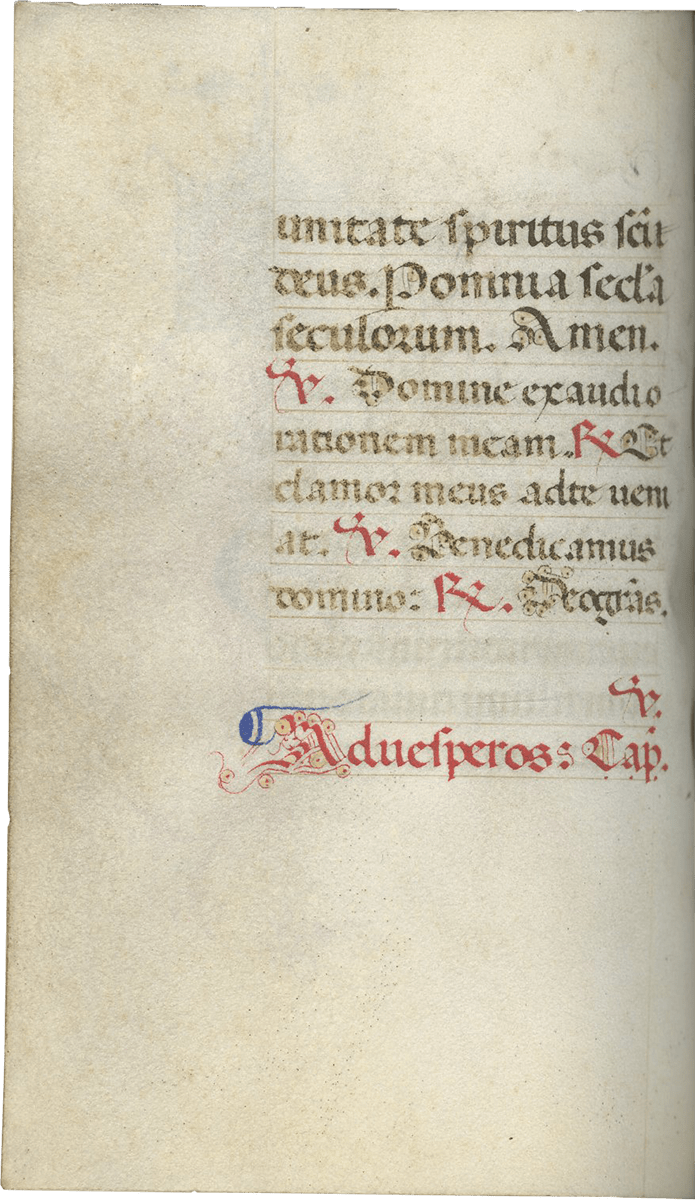 unitate spiritus scī
deus. Pomnia secła
seculorum. Amen.
℣. Domine exaudi o
rationem meam. ℟ Et
clamor meus ad te ueni
at. ℣. Benedicamus
domino: ℟. Deo grās.
℣.
Aduesperos: Cap̄.